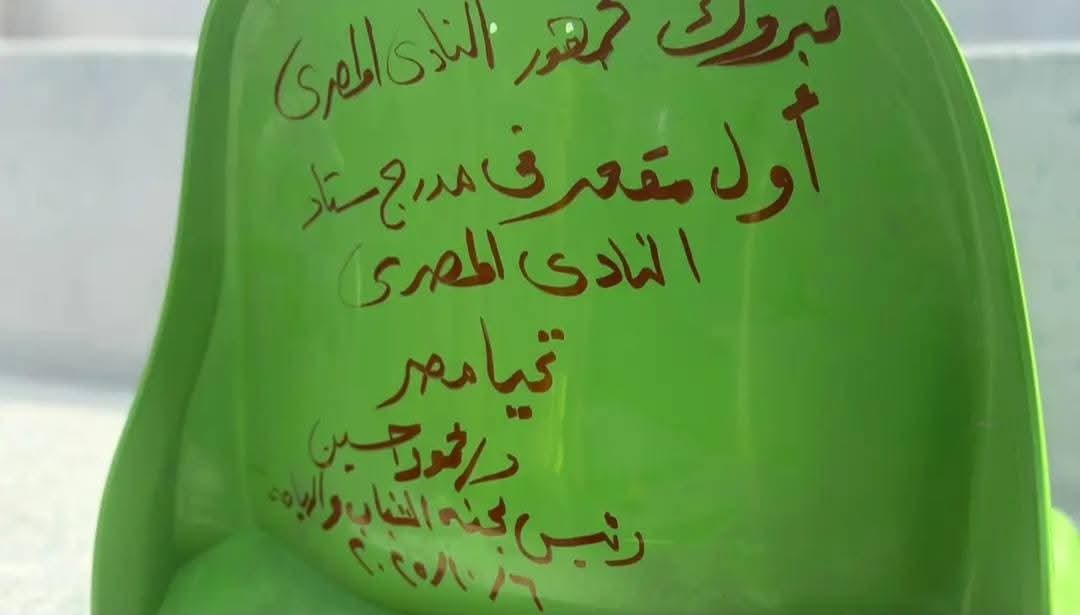 مبروك جمهور النادى المصرى
أول مقعد فى مدرج ستاد
النادى المصرى
تحيا مصر
د/ محمود حسين
رئيس لجنه الشباب والرياضه
٢٠٢٥/١٠/٦